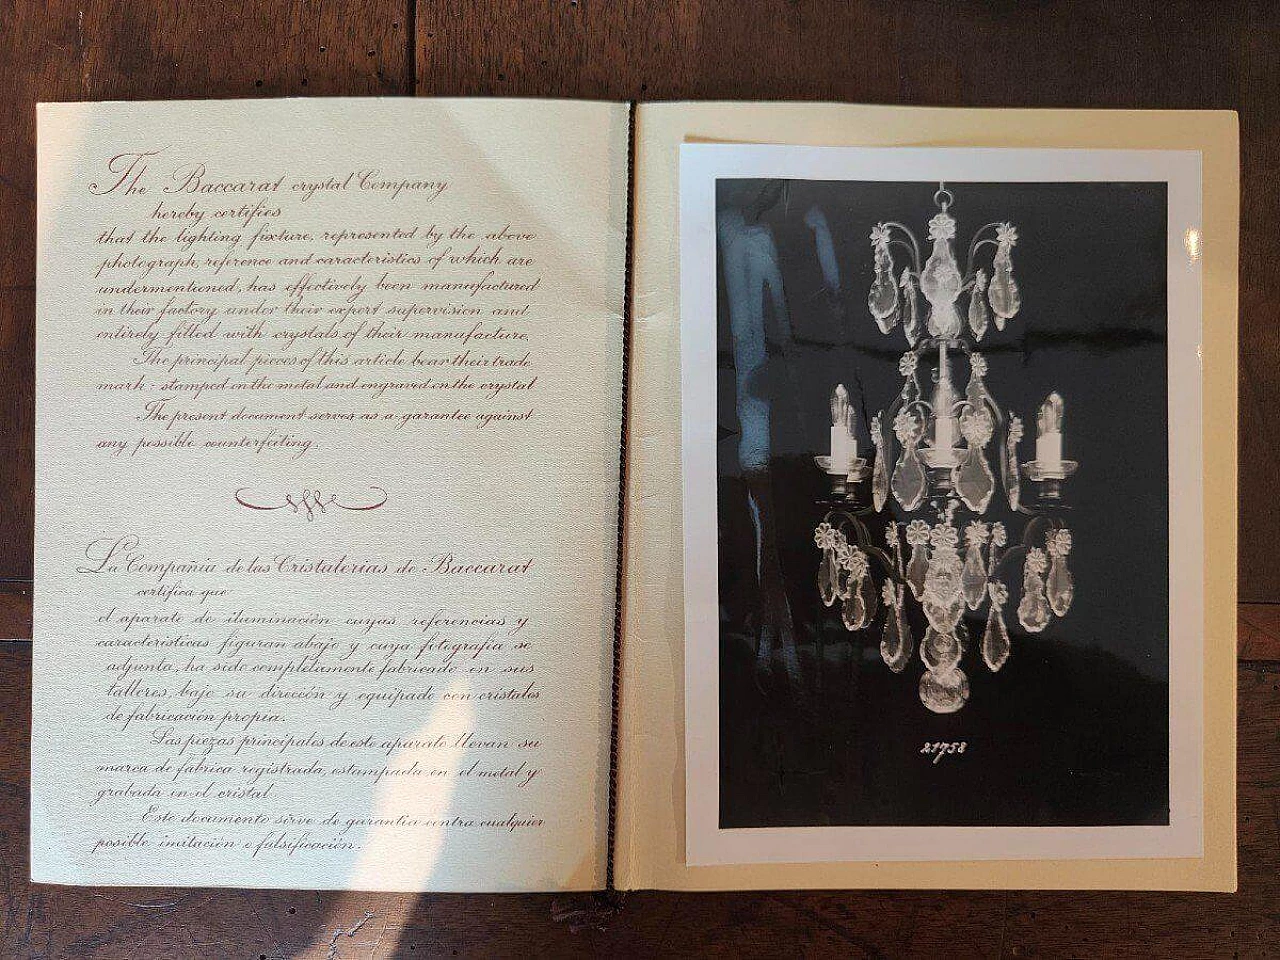 The Baccarat crystal Company
hereby certifies
that the lighting fixture, represented by the above
photograph, reference and caracteristics of which are
undermentioned, has effectively been manufactured
in their factory under their expert supervision and
entirely fitted with crystals of their manufacture.
The principal pieces of this article bear their trade
mark - stamped on the metal and engraved on the crystal
The present document serves as a garantee against
any possible counterfeiting.
La Compañia de las Cristalerias de Baccarat
certifica que
el aparato de iluminación cuyas referencias y
características figuran abajo y cuya fotografía se
adjunta, ha sido completamente fabricado en sus
talleres, bajo su dirección y equipado con cristales
de fabricación propia.
Las piezas principales de este aparato llevan su
marca de fábrica registrada, estampada en el metal y
grabada en el cristal
Este documento sirve de garantía contra cualquier
posible imitación o falsificación.
21758